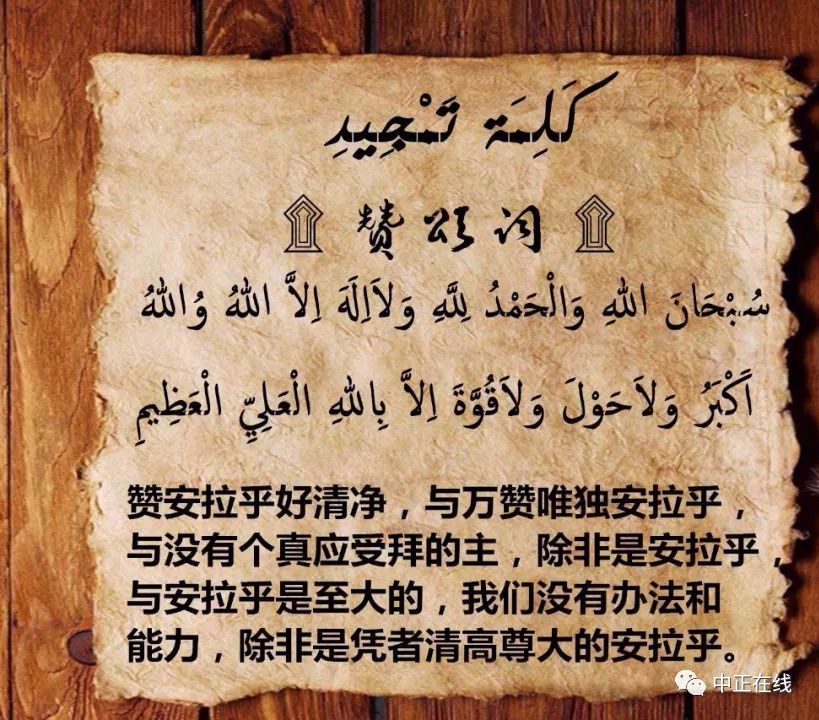 كَلِمَة تَمْجِيدِ
۩ 赞颂词 ۩
سُبْحَانَ اللهِ وَالْحَمْدُ لِلَّهِ وَلاَاِلَهَ اِلاَّ اللهُ وُاللهُ
اَكْبَرُ وَلاَحَوْلَ وَلاَقُوَّةَ اِلاَّ بِاللهِ الْعَلِيِّ الْعَظِيمِ
赞安拉乎好清净，与万赞唯独安拉乎，
与没有个真应受拜的主，除非是安拉乎，
与安拉乎是至大的，我们没有办法和
能力，除非是凭者清高尊大的安拉乎。
中正在线